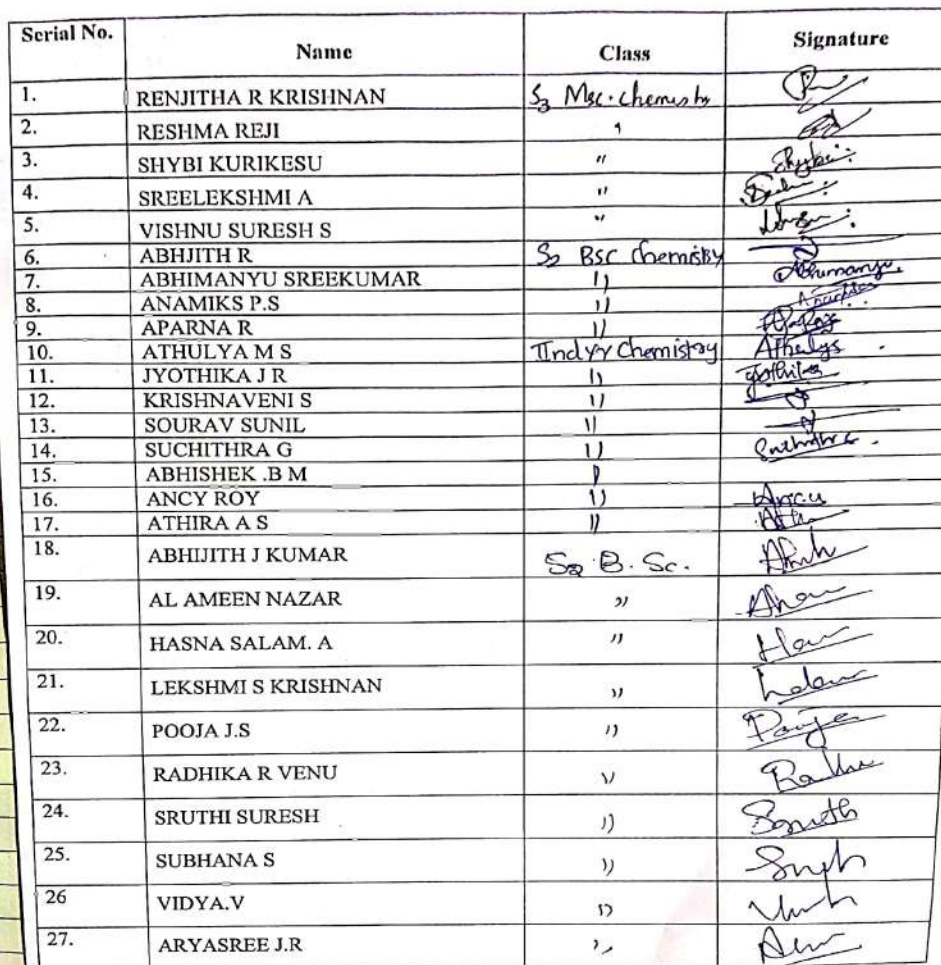 Serial No. Name Class Signature
1. RENJITHA R KRISHNAN S3 Msc. chemistry
2. RESHMA REJI "
3. SHYBI KURIKESU " Shybi
4. SREELEKSHMI A "
5. VISHNU SURESH S "
6. ABHJITH R S2 BSC Chemistry
7. ABHIMANYU SREEKUMAR 11 Abhimanyu
8. ANAMIKS P.S 11
9. APARNA R 11
10. ATHULYA M S IInd yr Chemistry Athulya
11. JYOTHIKA J R 11 Jyothika
12. KRISHNAVENI S 11
13. SOURAV SUNIL 11
14. SUCHITHRA G 11 Suchithra
15. ABHISHEK .B M
16. ANCY ROY 11
17. ATHIRA A S 11
18. ABHIJITH J KUMAR B. Sc.
19. AL AMEEN NAZAR "
20. HASNA SALAM. A "
21. LEKSHMI S KRISHNAN "
22. POOJA J.S " Pooja
23. RADHIKA R VENU "
24. SRUTHI SURESH "
25. SUBHANA S "
26 VIDYA.V "
27. ARYASREE J.R "